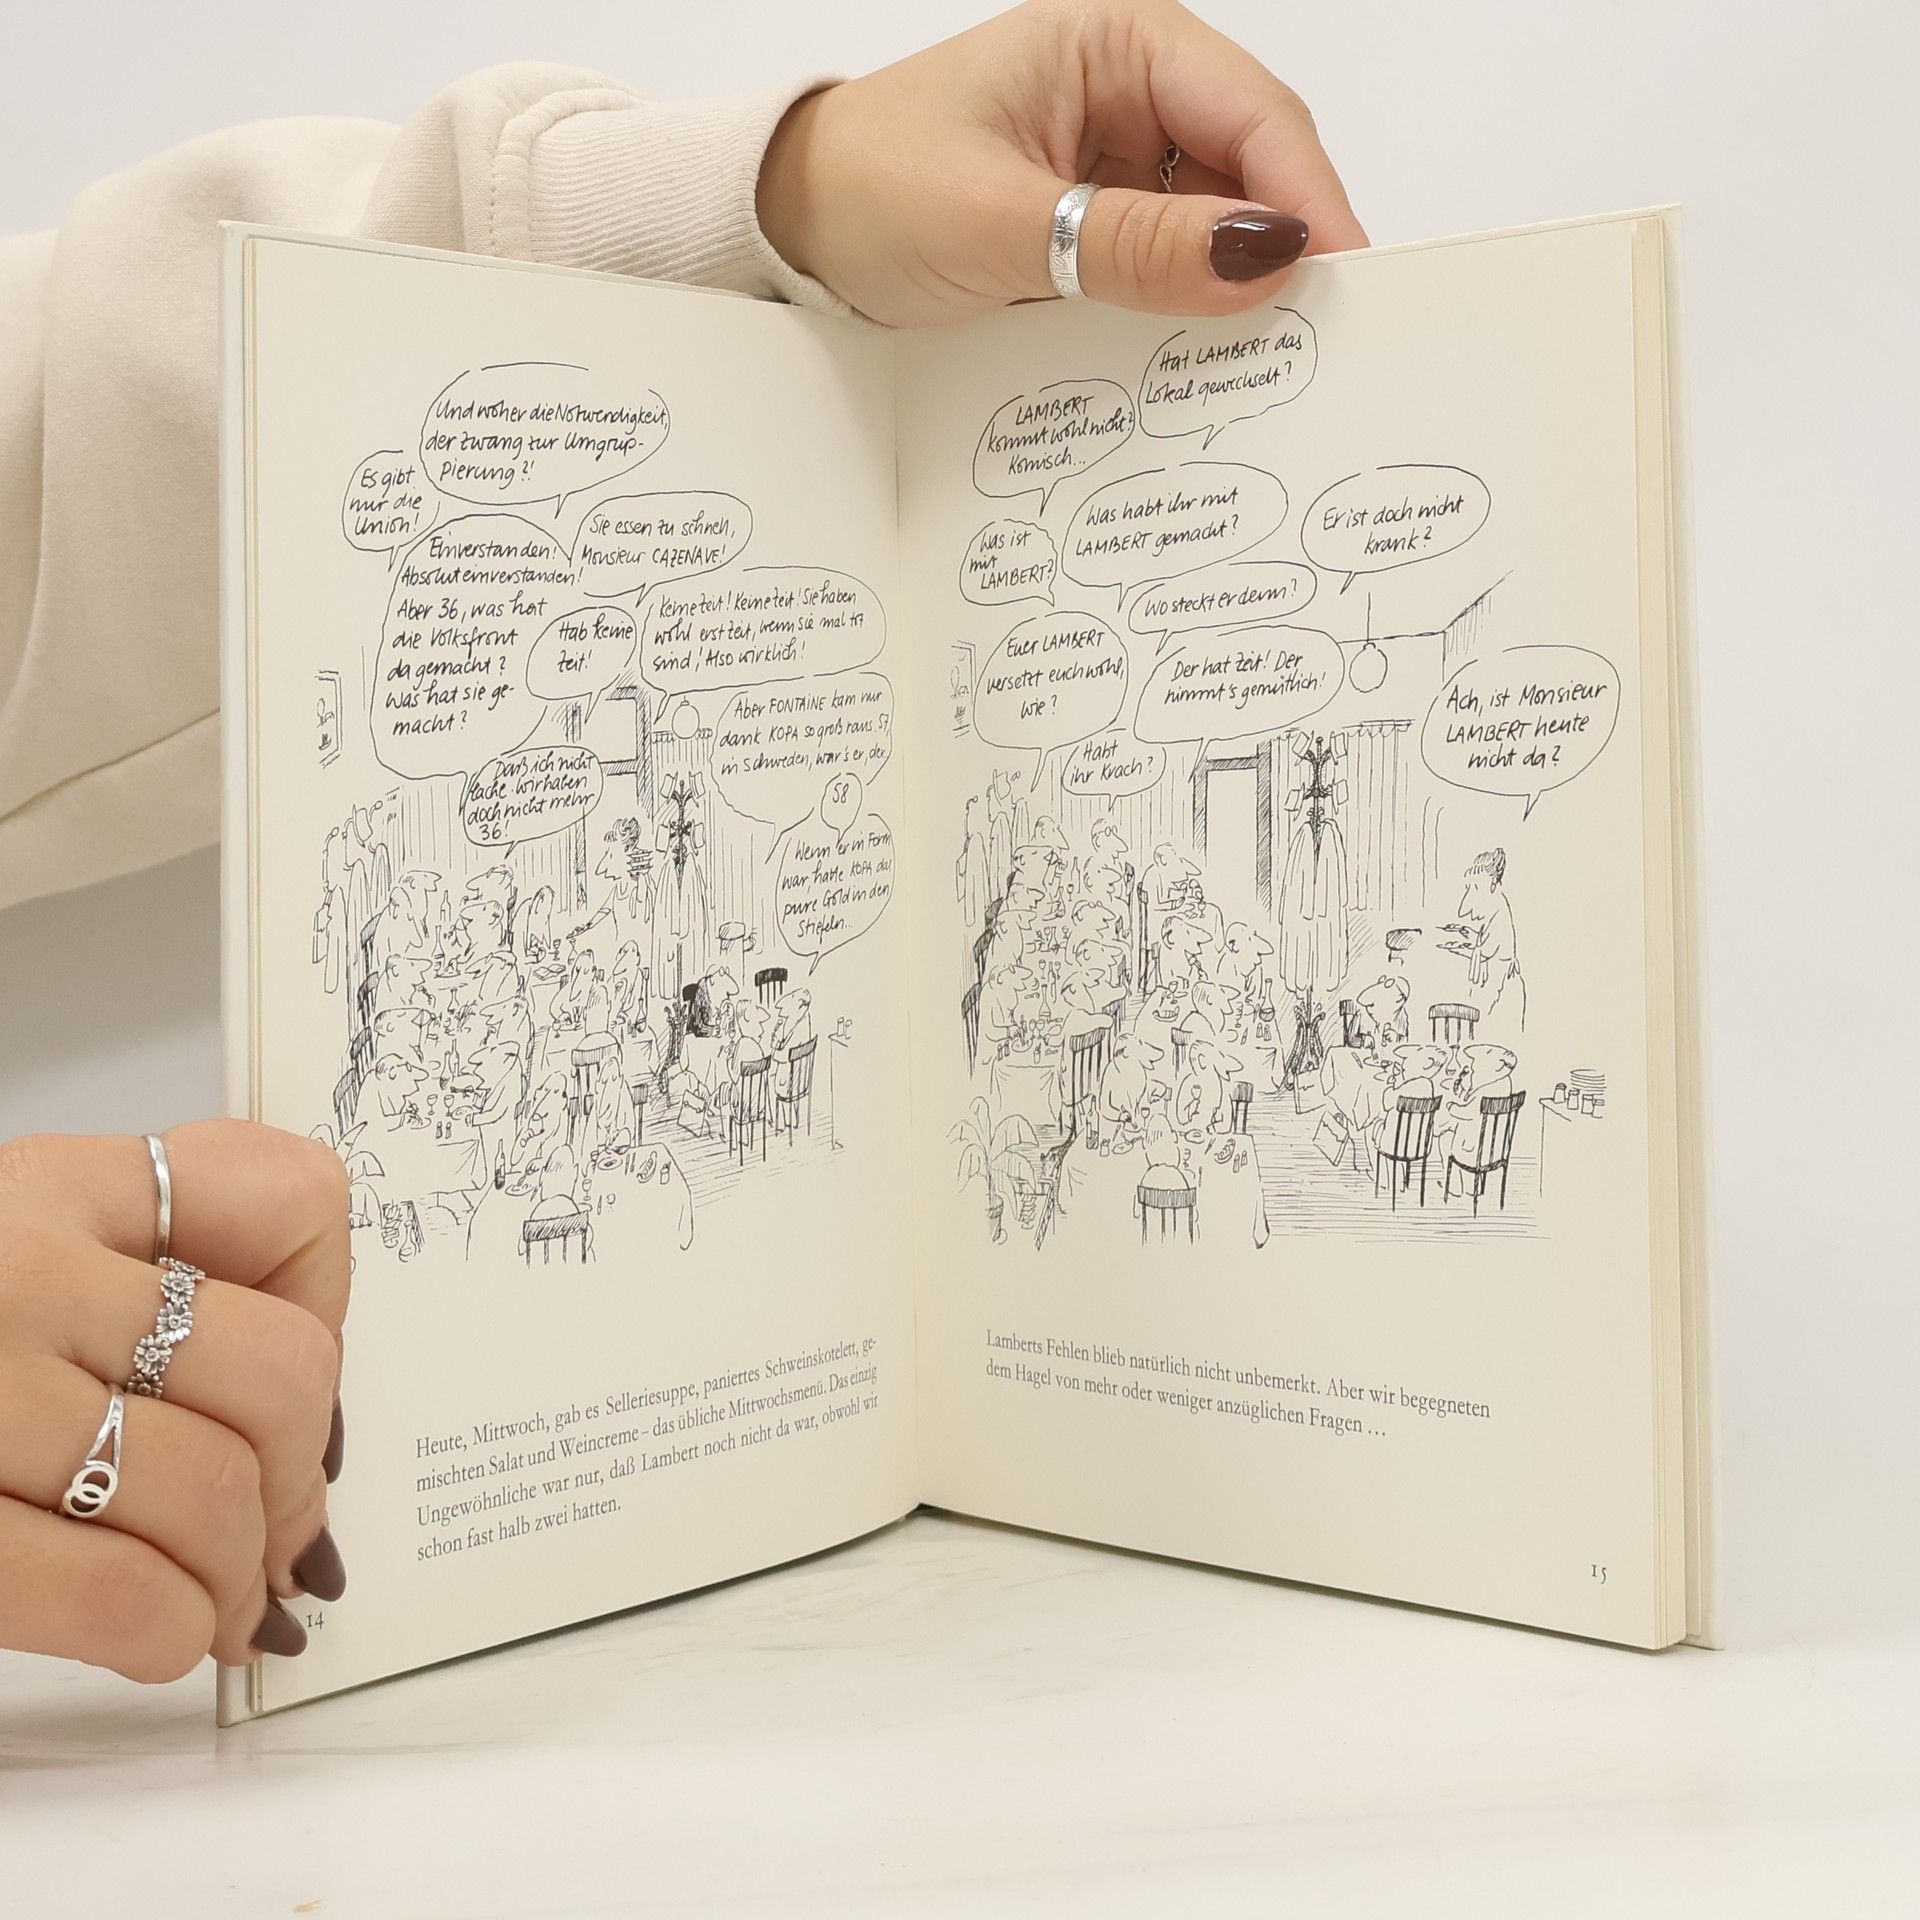 Und woher die Notwendigkeit,
der Zwang zur Umgrup-
pierung?!
Es gibt
nur die
Union!
Einverstanden!
Absolut einverstanden!
Aber 36, was hat
die Volksfront
da gemacht?
Was hat sie ge-
macht?
Sie essen zu schnell,
Monsieur CAZENAVE!
Hab keine
Zeit!
Keine Zeit! Keine Zeit! Sie haben
wohl erst Zeit, wenn sie mal tot
sind! Also wirklich!
Daß ich nicht
lache. Wir haben
doch nicht mehr
36!
Aber FONTAINE kam nur
dank KOPA so groß raus. 57,
in Schweden, war's er, der
58
Wenn er in Form
war, hatte KOPA das
pure Gold in den
Stiefeln...
Heute, Mittwoch, gab es Selleriesuppe, paniertes Schweinskotelett, ge-
mischten Salat und Weincreme – das übliche Mittwochsmenü. Das einzig
Ungewöhnliche war nur, daß Lambert noch nicht da war, obwohl wir
schon fast halb zwei hatten.
14
Hat LAMBERT das
Lokal gewechselt?
LAMBERT
kommt wohl nicht?
Komisch...
Was habt ihr mit
LAMBERT gemacht?
Er ist doch nicht
krank?
Was ist
mit
LAMBERT?
Wo steckt er denn?
Euer LAMBERT
versetzt euch wohl,
wie?
Der hat Zeit! Der
nimmt's gemütlich!
Ach, ist Monsieur
LAMBERT heute
nicht da?
Habt
ihr Krach?
Lamberts Fehlen blieb natürlich nicht unbemerkt. Aber wir begegneten
dem Hagel von mehr oder weniger anzüglichen Fragen ...
15